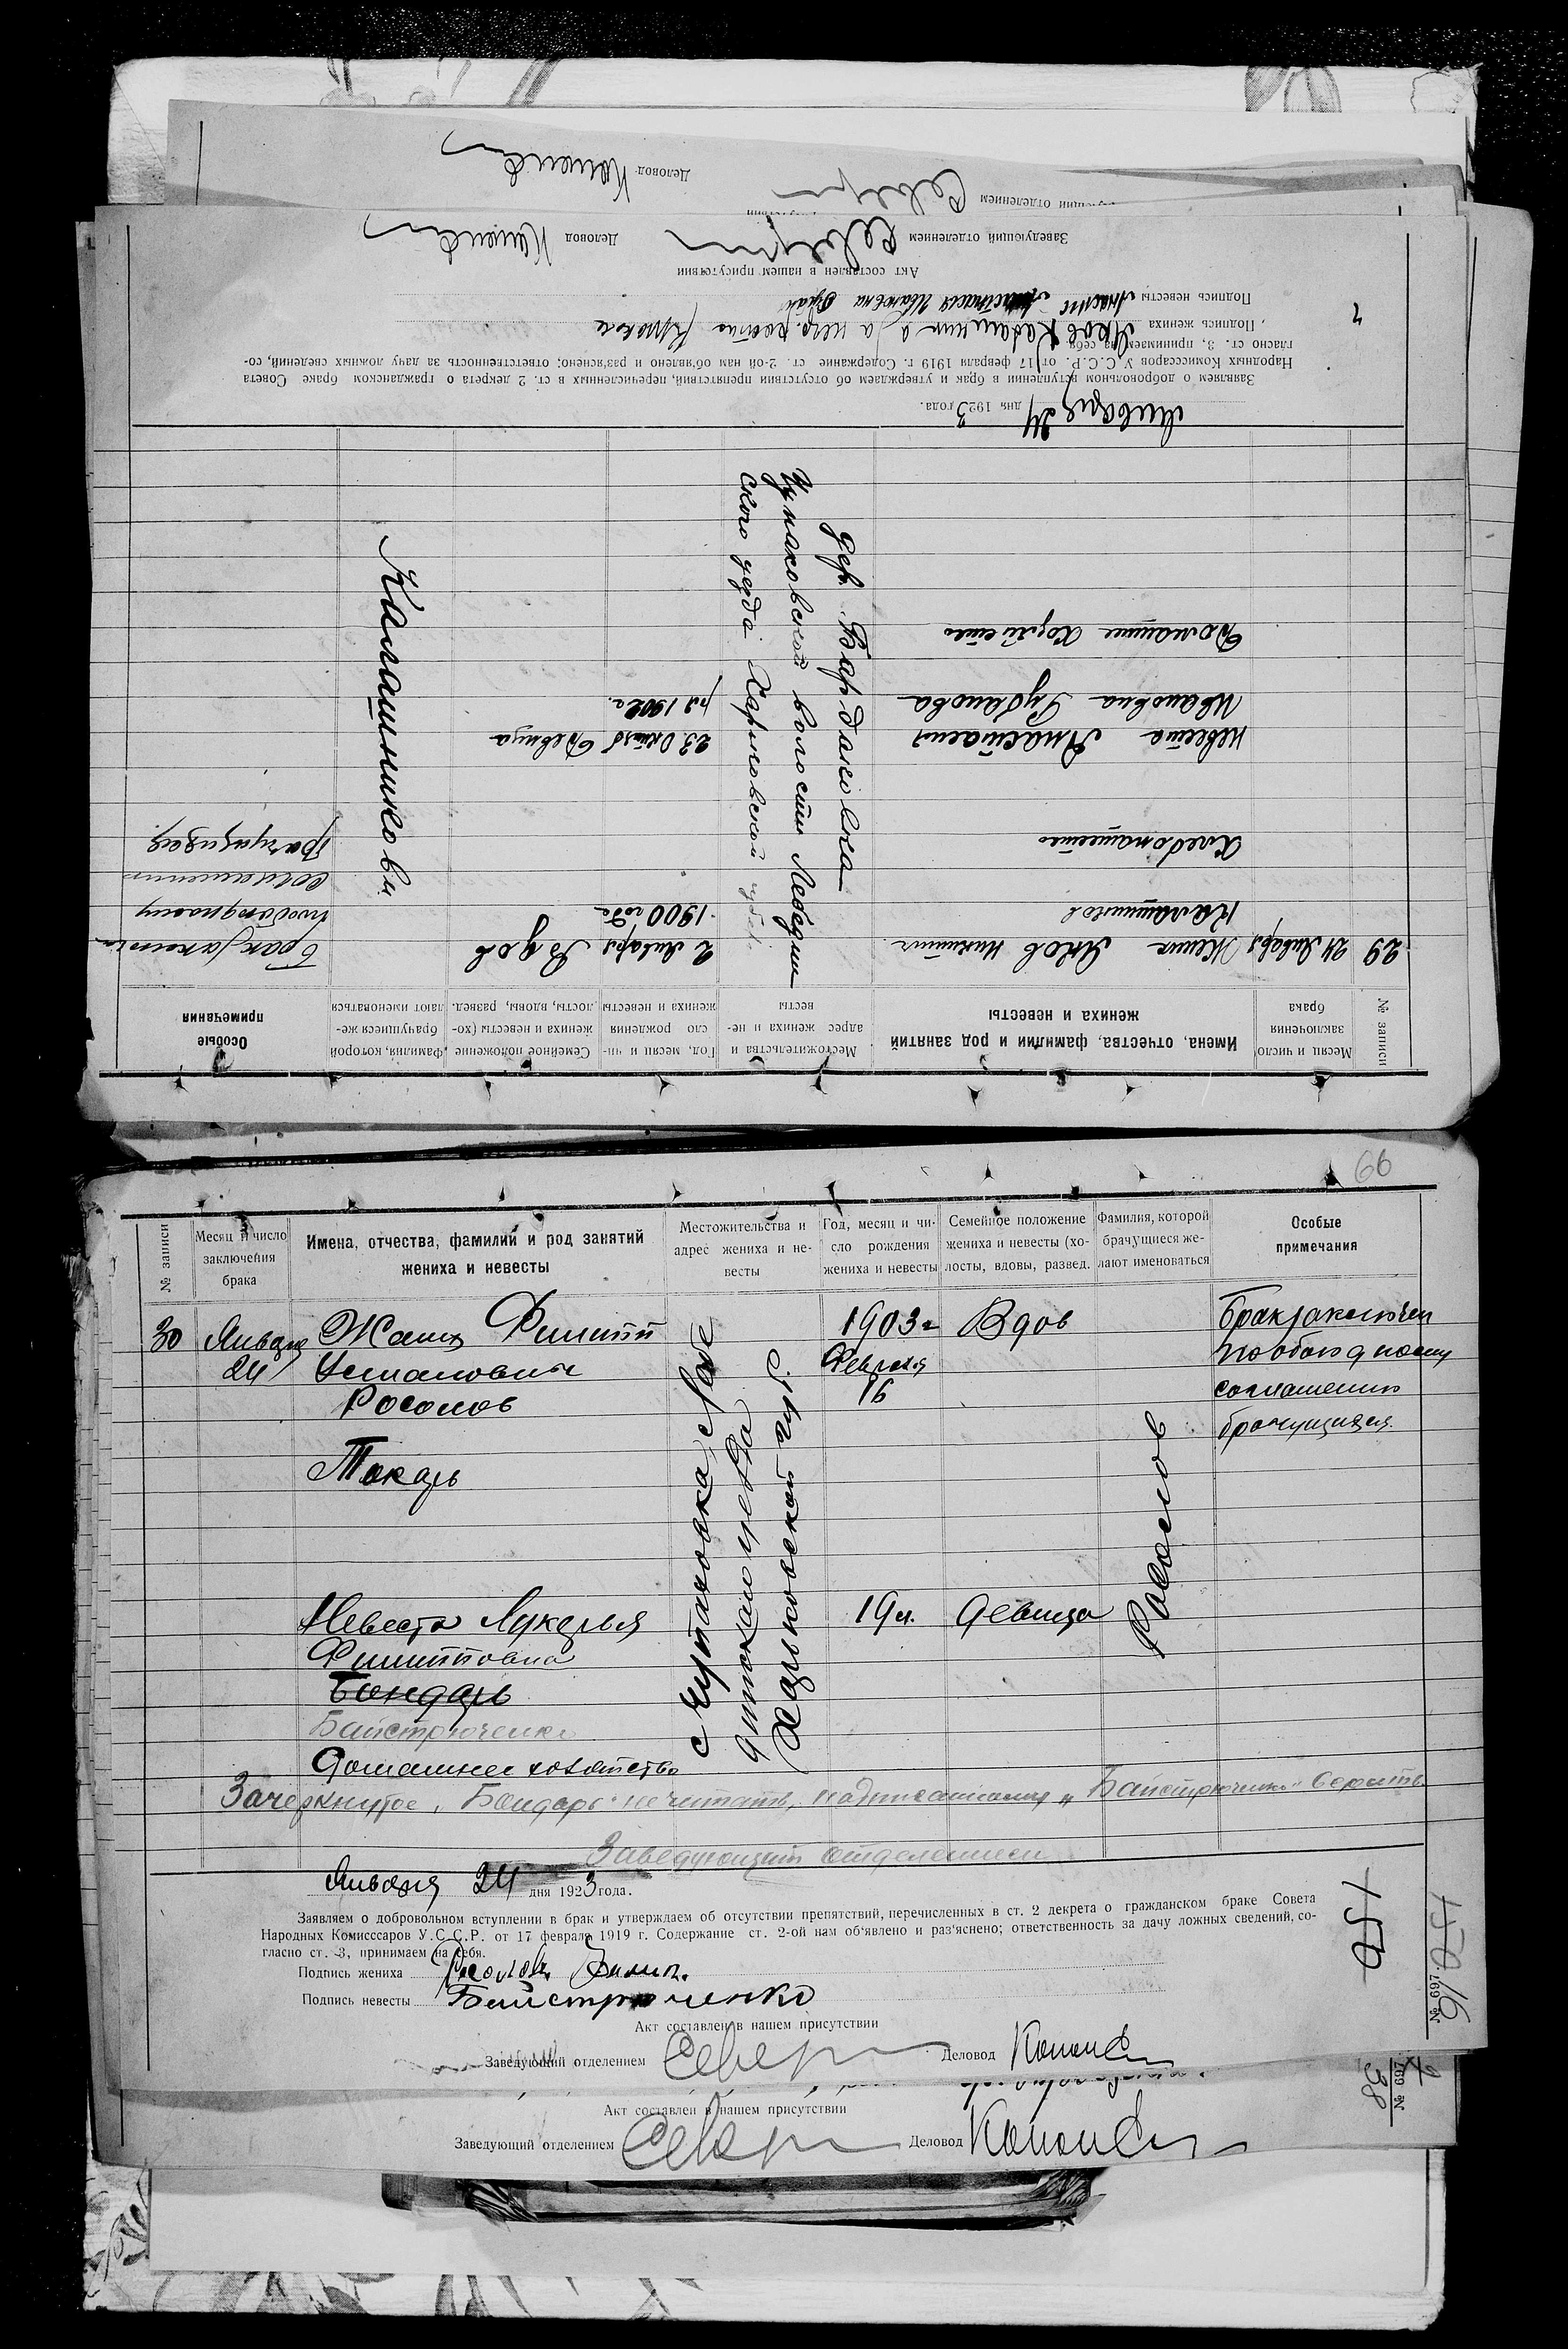 66
№ записи
Месяц и число заключения брака
Имена, отчества, фамилии и род занятий жениха и невесты
Местожительства и адрес жениха и невесты
Год, месяц и число рождения жениха и невесты
Семейное положение жениха и невесты (холосты, вдовы, развед.
Фамилия, которой брачущиеся желают именоваться
Особые примечания
30
Января
24
Жених Филипп
Росолов
Токарь
Харьковской губ.
1903 г.
Февраля
16
Вдов
Росолов
Брак заключен
по обоюдному
соглашению
брачущихся.
Невеста Лукерья
Филипповна
Бондарь
Байстрюченко
Домашнее хозяйство
19 л.
девица
Зачеркнутое „Бондарь" не читать, надписанному „Байстрюченко" верить
Заведующий отделением
Января 24 дня 1923 года.
Заявляем о добровольном вступлении в брак и утверждаем об отсутствии препятствий, перечисленных в ст. 2 декрета о гражданском браке Совета
Народных Комисссаров У.С.С.Р. от 17 февраля 1919 г. Содержание ст. 2-ой нам об'явлено и раз'яснено; ответственность за дачу ложных сведений, со-
гласно ст. 3, принимаем на себя.
Подпись жениха Росолов
Подпись невесты Байстрюченко
Акт составлен в нашем присутствии
Заведующий отделением
Деловод
№ 697.
Акт составлен в нашем присутствии
Заведующий отделением
Деловод
№ 697
38
№ записи
Месяц и число заключения брака
Имена, отчества, фамилии и род занятий жениха и невесты
Местожительства и адрес жениха и невесты
Год, месяц и число рождения жениха и невесты
Семейное положение жениха и невесты (холосты, вдовы, развед.
Фамилия, которой брачущиеся желают именоваться
Особые примечания
29
24 Января
Жених Яков Никитич
Калашников
Хлебопашество
2 Января
1900 года
Вдов
Брак заключен
по обоюдному
соглашению
брачущихся
Невеста Анастасия
Ивановна Рубанова
Домашнее хозяйство
23 Октяб
1902 г.
Девица
волости Лебедин-
ского уезда Харьковской губ.
Калашниковы
Января 24 дня 1923 года.
Заявляем о добровольном вступлении в брак и утверждаем об отсутствии препятствий, перечисленных в ст. 2 декрета о гражданском браке Совета
Народных Комиссаров У.С.С.Р. от 17 февраля 1919 г. Содержание ст. 2-ой нам об'явлено и раз'яснено; ответственность за дачу ложных сведений, со-
гласно ст. 3, принимаем на себя.
Подпись жениха Яков
Подпись невесты Анастасия Ивановна
Акт составлен в нашем присутствии
Заведующий отделением
Деловод
отделением
Деловод